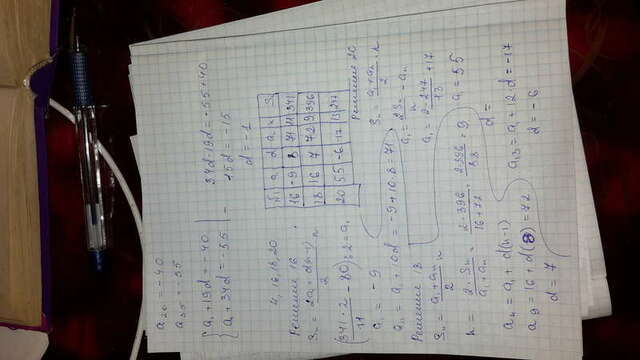 a₂₀ = -40
a₃₅ = -55
{ a₁ + 19d = -40
{ a₁ + 34d = -55
34d - 19d = -55 + 40
15d = -15
d = -1
4, 16, 18, 20
N: a₁ d aₙ n Sₙ
16 -9 8 71 11 341
18 16 7 72 9 396
20 55 -6 -17 13 247
Решение 16
Sₙ = 2a₁ + d(n-1) / 2 · n
(341·2 / 11 - 80) : 2 = a₁
a₁ = -9
a₁₁ = a₁ + 10d = -9 + 10·8 = 71
Решение 18
Sₙ = a₁ + aₙ / 2 · n
n = 2·Sₙ / a₁ + aₙ = 2·396 / 16 + 72 = 2·396 / 88 = 9
aₙ = a₁ + d(n-1)
a₉ = 16 + d(8) = 72
d = 7
Решение 20
Sₙ = a₁ + aₙ / 2 · n
a₁ = 2Sₙ / n - aₙ
a₁ = 2·247 / 13 + 17
a₁ = 55
d =
a₁₃ = a₁ + 12·d = -17
d = -6